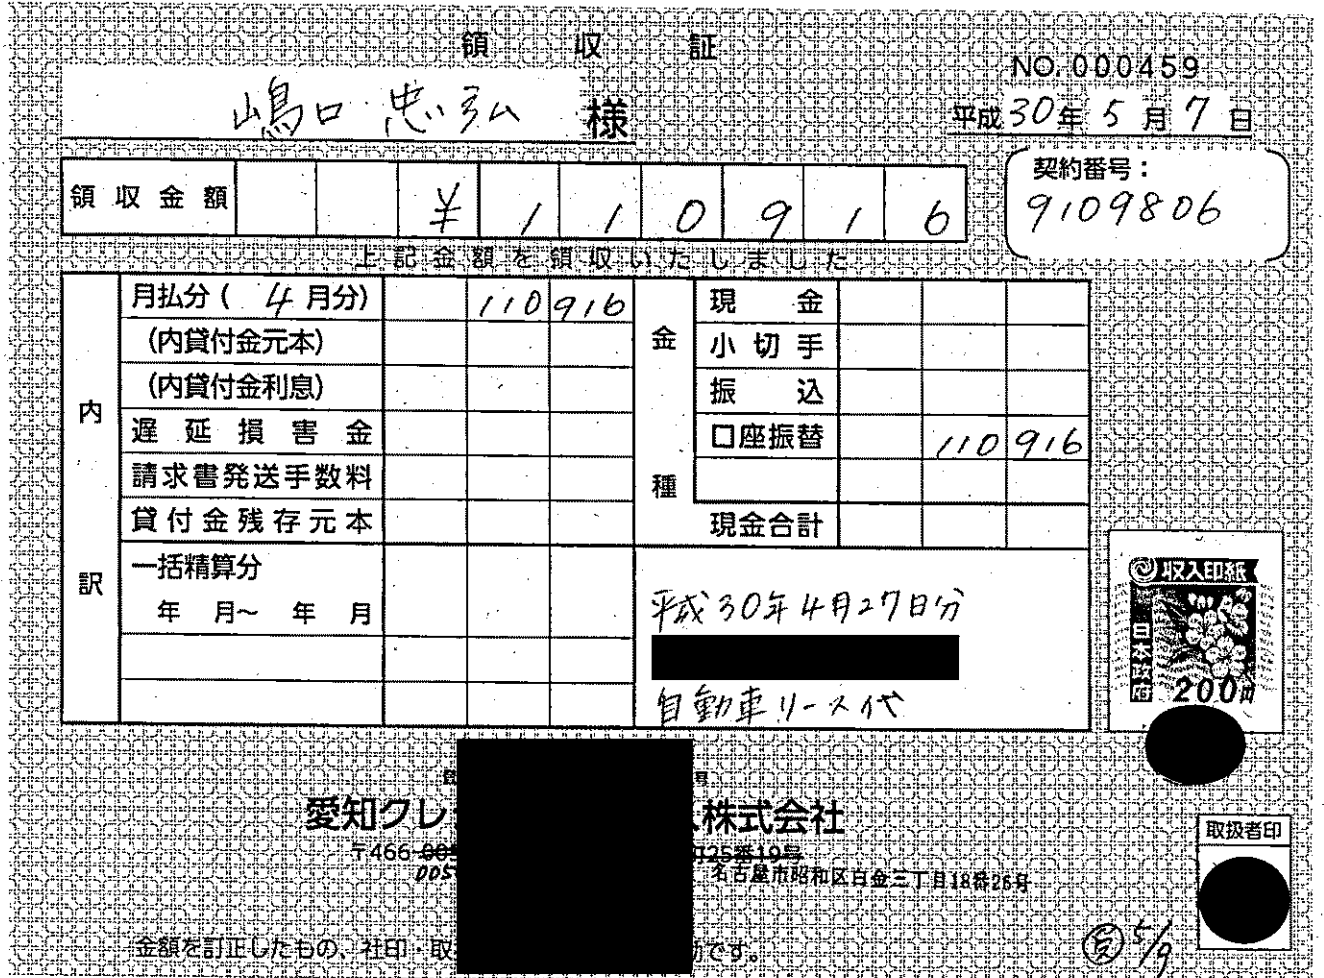 領収証
NO. 000459
嶋口 忠弘 様
平成30年5月7日
契約番号：
9109806
領収金額 ¥110916
上記金額を領収いたしました
内訳
月払分( 4月分) 110916
(内貸付金元本)
(内貸付金利息)
遅延損害金
請求書発送手数料
貸付金残存元本
一括精算分
年 月〜 年 月
金種
現金
小切手
振込
口座振替 110916
現金合計
平成30年4月27日分
自動車リース代
収入印紙
日本政府
200円
愛知クレ 株式会社
〒466- 25番19号
005 名古屋市昭和区白金三丁目18番26号
取扱者印
金額を訂正したもの、社印・取 効です。
5/9